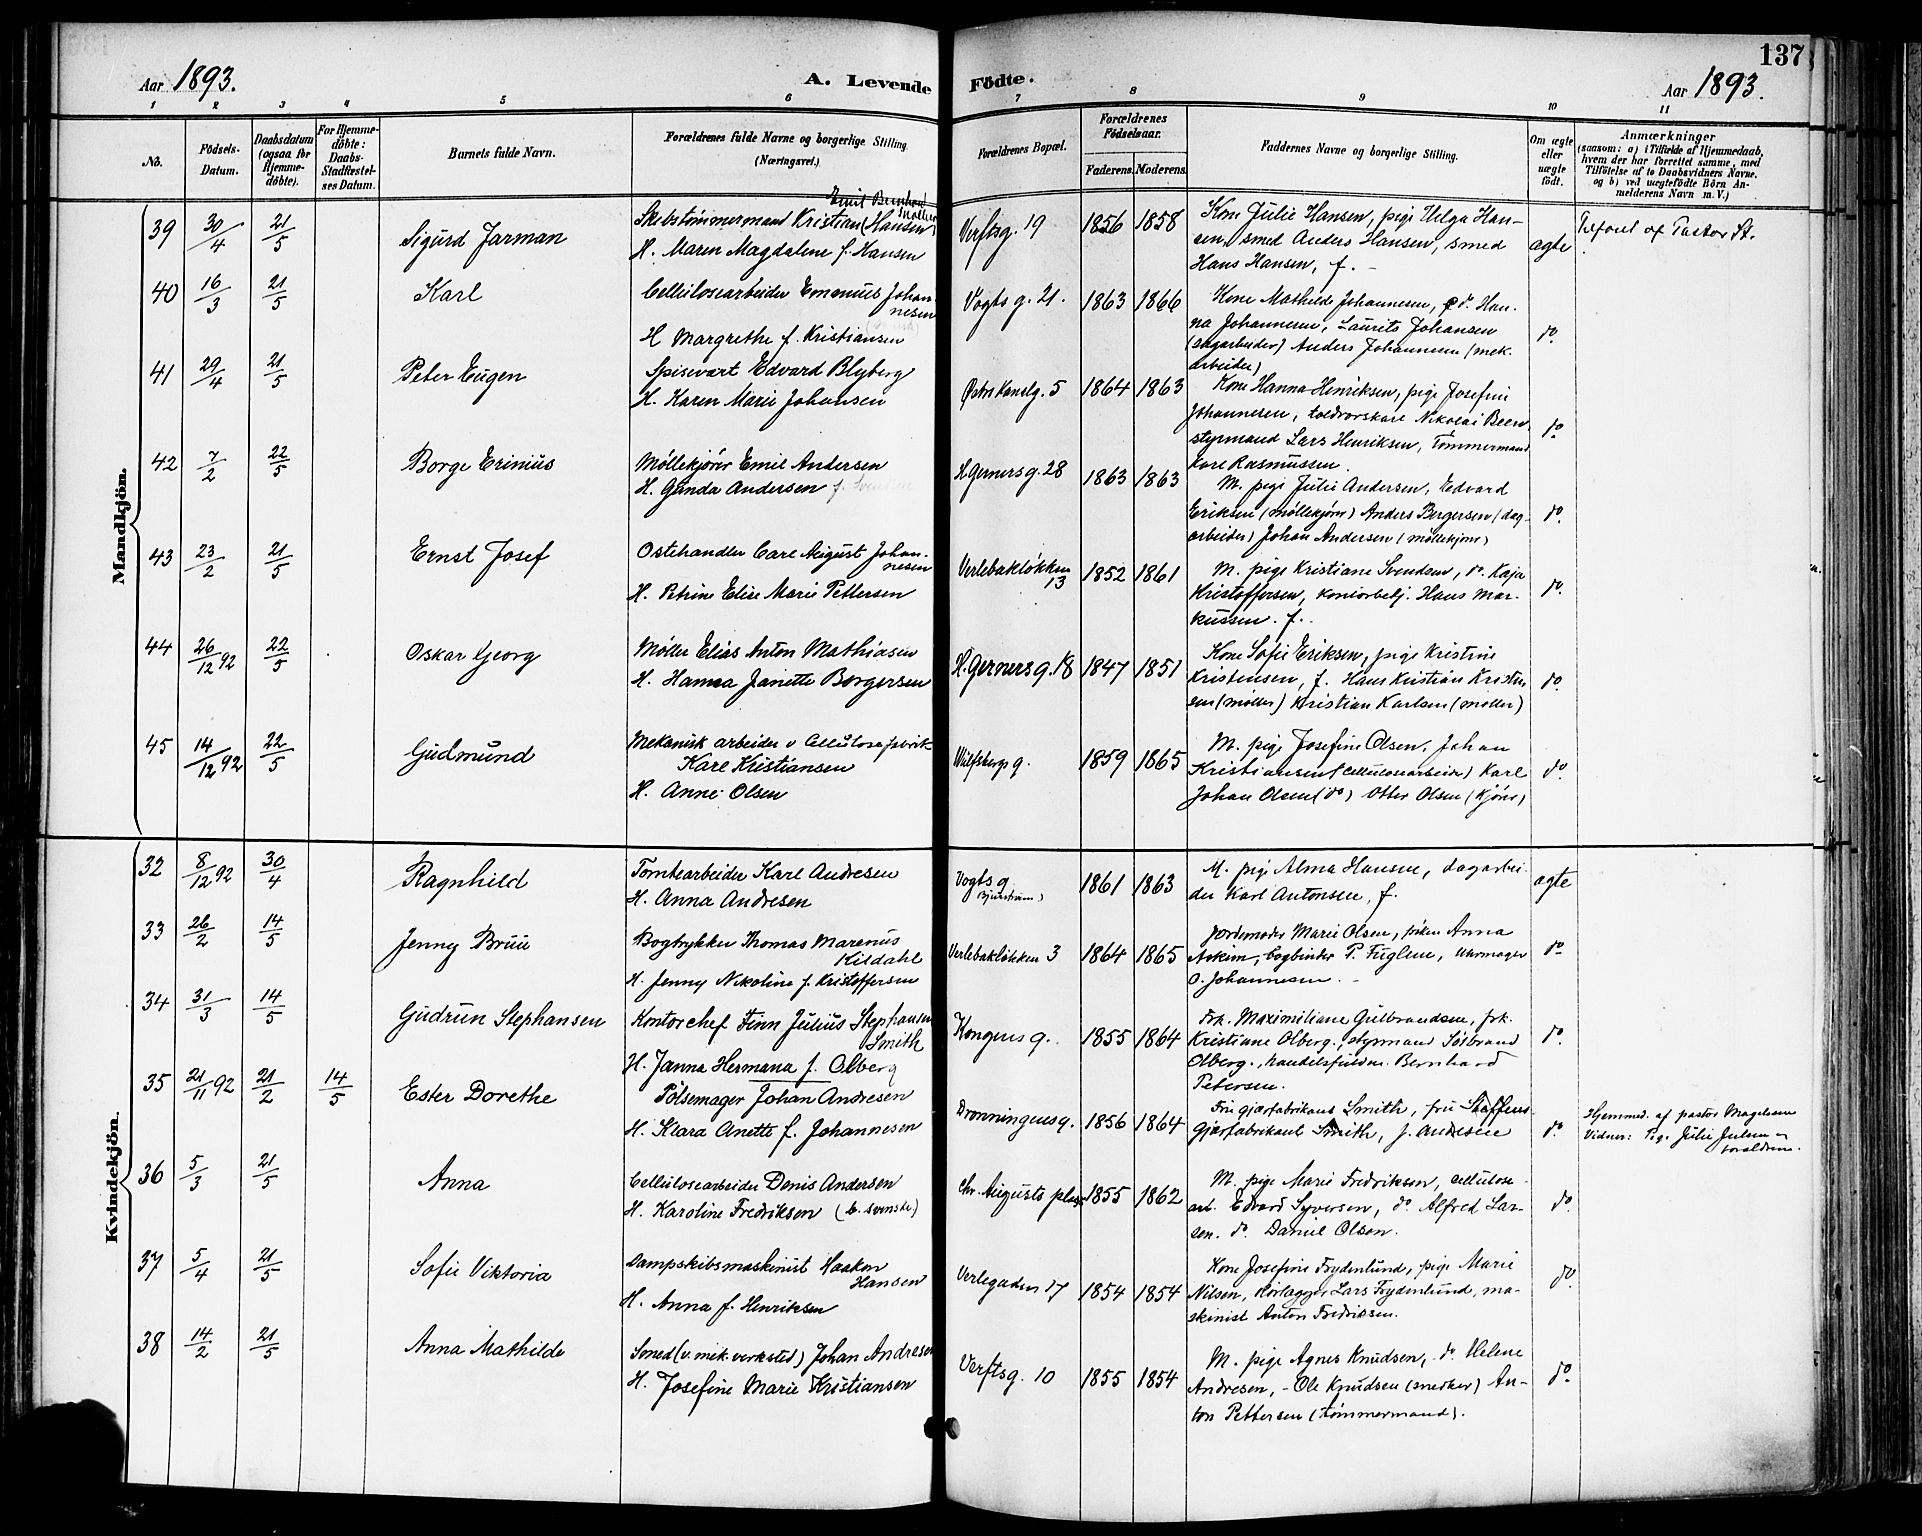 137
Aar 1893.
A. Levende Födte.
Aar 1893.
1 2 3 4 5 6 7 8 9 10 11
No.
Födsels-Datum.
Daabsdatum (ogsaa for Hjemme-döbte).
For Hjemme-döbte: Daabs-Stadfæstel-ses Datum.
Barnets fulde Navn.
Forældrenes fulde Navne og borgerlige Stilling (Næringsvei.)
Forældrenes Bopæl.
Forældrenes Födselsaar.
Faderens. Moderens.
Faddernes Navne og borgerlige Stilling.
Om ægte eller uægte födt.
Anmærkninger
(saasom: a) i Tilfælde af Hjemmedaab,
hvem der har forrettet samme, med
Tilföielse af to Daabsvidners Navne.
og b) ved uægtefödte Börn An-
melderens Navn m. V.)
Mandkjön.
39 30/4 21/5 Sigurd Jarman
Emil Bernhard Møller
Skibstømmermand Kristian (Hansen)
H. Maren Magdalene f. Hansen
Verftsg. 19 1856 1858
Kone Julie Hansen, pige Helga Han-
sen, smed Anders Hansen, smed
Hans Hansen, f. -
ægte
af Pastor St.
40 16/3 21/5 Karl
Cellulosearbeider Emanius Johan-
nesen
H Margrethe f. Kristiansen
Vogts g. 21. 1863 1866
Kone Mathilde Johannesen, do. Han-
na Johannesen, Laurits Johansen
(dagarbeider) Anders Johannesen (mek.
arbeider)
do.
41 29/4 21/5 Peter Eugen
Spisevært Edvard Blyberg
H. Karen Marie Johansen
Østre Kanalg. 5 1864 1863
Kone Hanna Henriksen, pige Josefine
Johannesen, toldvorskare Nikolai Beer
styrmand Lars Henriksen, Tømmermand
Kare Rasmussen.
do.
42 7/2 22/5 Borge Erinius
Møllekjører Emil Andersen
H. Gunda Andersen
H. Gerners g. 28 1863 1863
M. pige Julie Andersen, Edvard
Eriksen (møllekjører) Anders Bergersen (dag-
arbeider) Johan Andersen (møllekjører)
do.
43 23/2 21/5 Ernst Josef
Ostehandler Carl August Johan-
nesen
H. Petrine Elise Marie Pettersen
Verlebakløkken
13
1852 1861
M. pige Kristiane Svendsen, do. Kaja
Kristoffersen, kontorbetj. Hans Mar-
kussen. f..
do.
44 26/12 92 22/5 Oskar Georg
Møller Elias Anton Mathiasen
H. Hanna Janette Borgersen
H. Gerners g. 18 1847 1851
Kone Sofie Eriksen, pige Kristine
Kristensen, f. Hans Kristian Kristen
sen (møller) Kristian Karlsen (møller)
do.
45 14/12 92 22/5 Gudmund
Mekanisk arbeider v Cellulosefabrik
Karl Kristiansen
H. Anne Olsen
Wulfsbergs g. 1859 1865
M. pige Josefine Olsen, Johan
Kristiansen (Cellulosearbeider) Karl
Johan Olsen (do) Otter Olsen (kjører)
do.
Kvindekjön.
32 8/12 92 30/4 Ragnhild
Tomtearbeider Karl Andresen
H. Anna Andresen
Vogts g
1861 1863
M. pige Alma Hansen, dagarbei-
der Karl Antonsen, f.
ægte
33 26/2 14/5 Jenny Bruu
Bogtrykker Thomas Marenus
Kildahl
H. Jenny Nikoline f. Kristoffersen
Verlebakløkken 3 1864 1865
Jordemoder Marie Olsen, frøken Anna
Askim, bogbinder P. Fuglene, Uhrmager
O. Johannesen. -
do
34 31/3 14/5 Gudrun Stephansen
Kontorchef Finn Julius Stephansen
Smith
H. Janna Hermana f. Olberg
Kongens g. 1855 1864
Frk. Maximiliane Gulbrandsen, frk.
Kristiane Olberg, styrmand Sølbrand
Olberg, handelsfuldm. Bernhard
Petersen.
do.
35 21/11 92 21/2 14/5 Ester Dorethe
Pølsemager Johan Andresen
H. Klara Anette f. Johannesen
Dronningens g. 1856 1864
Fru gjærfabrikant Smith, fru Staffens-
Gjærfabrikant Smith, f. Andresen
do.
Hjemmed. af pastor Magelssen
Vidner: Pige Julie Julsen og
forældrene.
36 5/3 21/5 Anna
Cellulosearbeider Denis Andersen
H. Karoline Fredriksen (b. svenske)
Chr. Augusts plads 1855 1862
M. pige Marie Fredriksen, cellulose-
arb. Edvard Syversen, do. Alfred Lar-
sen. do. Daniel Olsen.
do.
37 5/4 21/5 Sofie Viktoria
Dampskibsmaskinist Haakon
Hansen
H. Anna f. Henriksen
Verlegaden 17 1854 1854
Kone Josefine Frydenlund, pige Marie
Nilsen, Rørlægger Lars Frydenlund, ma-
skinist Anton Fredriksen.
do.
38 14/2 21/5 Anna Mathilde
Smed (v. mek. verksted) Johan Andresen
H. Josefine Marie Kristiansen
Verftsg. 10 1855 1854
M. pige Agnes Knudsen, do. Helene
Andresen, - Ole Knudsen (snedker) An-
ton Pettersen (tømmermand).
do.